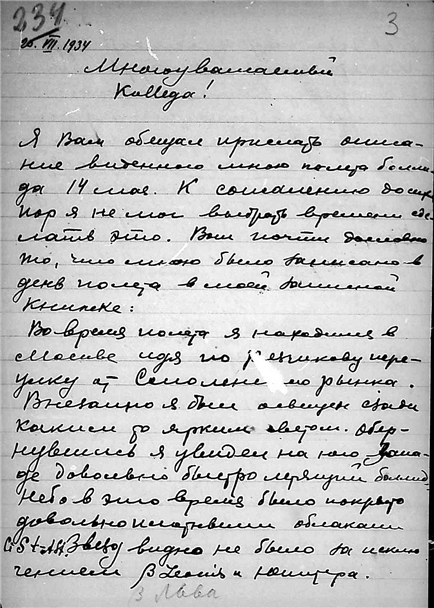 234
3
25. VII. 1934
Многоуважаемый
Коллега!
Я Вам обещал прислать описа-
ние виденного мною полета боли-
да 14 мая. К сожалению до сих
пор я не мог выбрать времени сде-
лать это. Вот почти дословно
то, что мною было записано в
день полета в моей записной
книжке:
Во время полета я находился в
Москве идя по переу-
лку от Смоленского рынка.
Внезапно я был освещен сзади
каким то ярким светом. Обер-
нувшись я увидел на юго западе
довольно быстро летящий болид.
Небо в это время было покрыто
довольно плотными облаками
Звезд видно не было за исклю
чением β Leonis и Юпитера.
β Льва